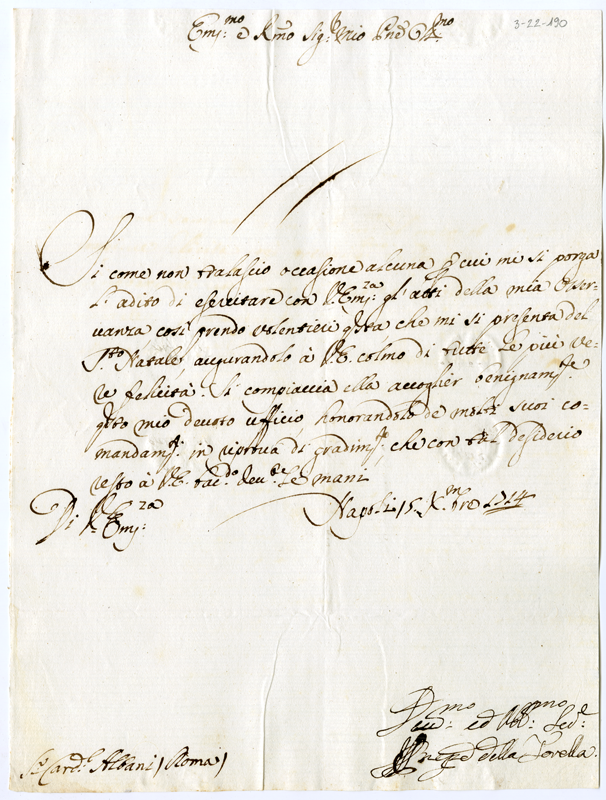 3-22-190
Em:mo e Rmo Sig:r Mio Pne
Si come non tralascio occasione alcuna p cui mi si porga
l'adito di esercitare con V. Em:za gl'atti della mia Osser-
vanza così prendo volentieri qsta che mi si presenta del
S.to Natale, augurandolo à V.E. colmo di tutte le più ve-
re felicità. Si compiaccia ella accoglier benignamte
qsto mio devoto ufficio honorandolo de molti suoi co-
mandam:ti in riprova di gradim:to, che con tal desiderio
resto à V.E. bac:do dev:te le mani
Di V. Em:za
Napoli 15 Xmbre 1714
Dev:mo ed Obb:mo Sed:e
Prepe della Torella.
S:r Card:l Albani (Roma)